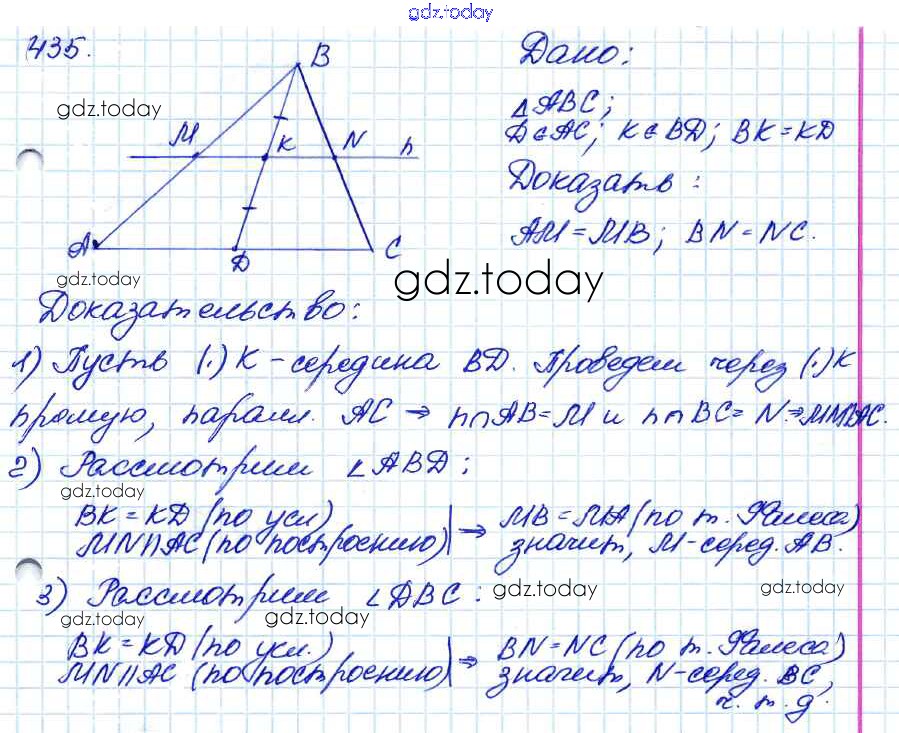 gdz.today
435.
B
Дано:
gdz.today
△ABC;
M
K
N
n
D∈AC; K∈BD; BK=KD
Доказать:
AM=MB; BN=NC.
A
D
C
gdz.today
gdz.today
Доказательство:
1) Пусть (·) K - середина BD. Проведем через (·) K
прямую, паралл. AC ⇒ n∩AB=M и n∩BC=N ⇒ MN∥AC.
2) Рассмотрим ∠ABD:
gdz.today
BK=KD (по усл) | ⇒ MB=MA (по т. Фалеса)
MN∥AC (по построению) | значит, M-серед. AB.
3) Рассмотрим ∠DBC:
gdz.today
gdz.today
gdz.today
gdz.today
BK=KD (по усл.) | ⇒ BN=NC (по т. Фалеса)
MN∥AC (по построению) | значит, N-серед. BC,
gdz.today
gdz.today
ч. т. д.